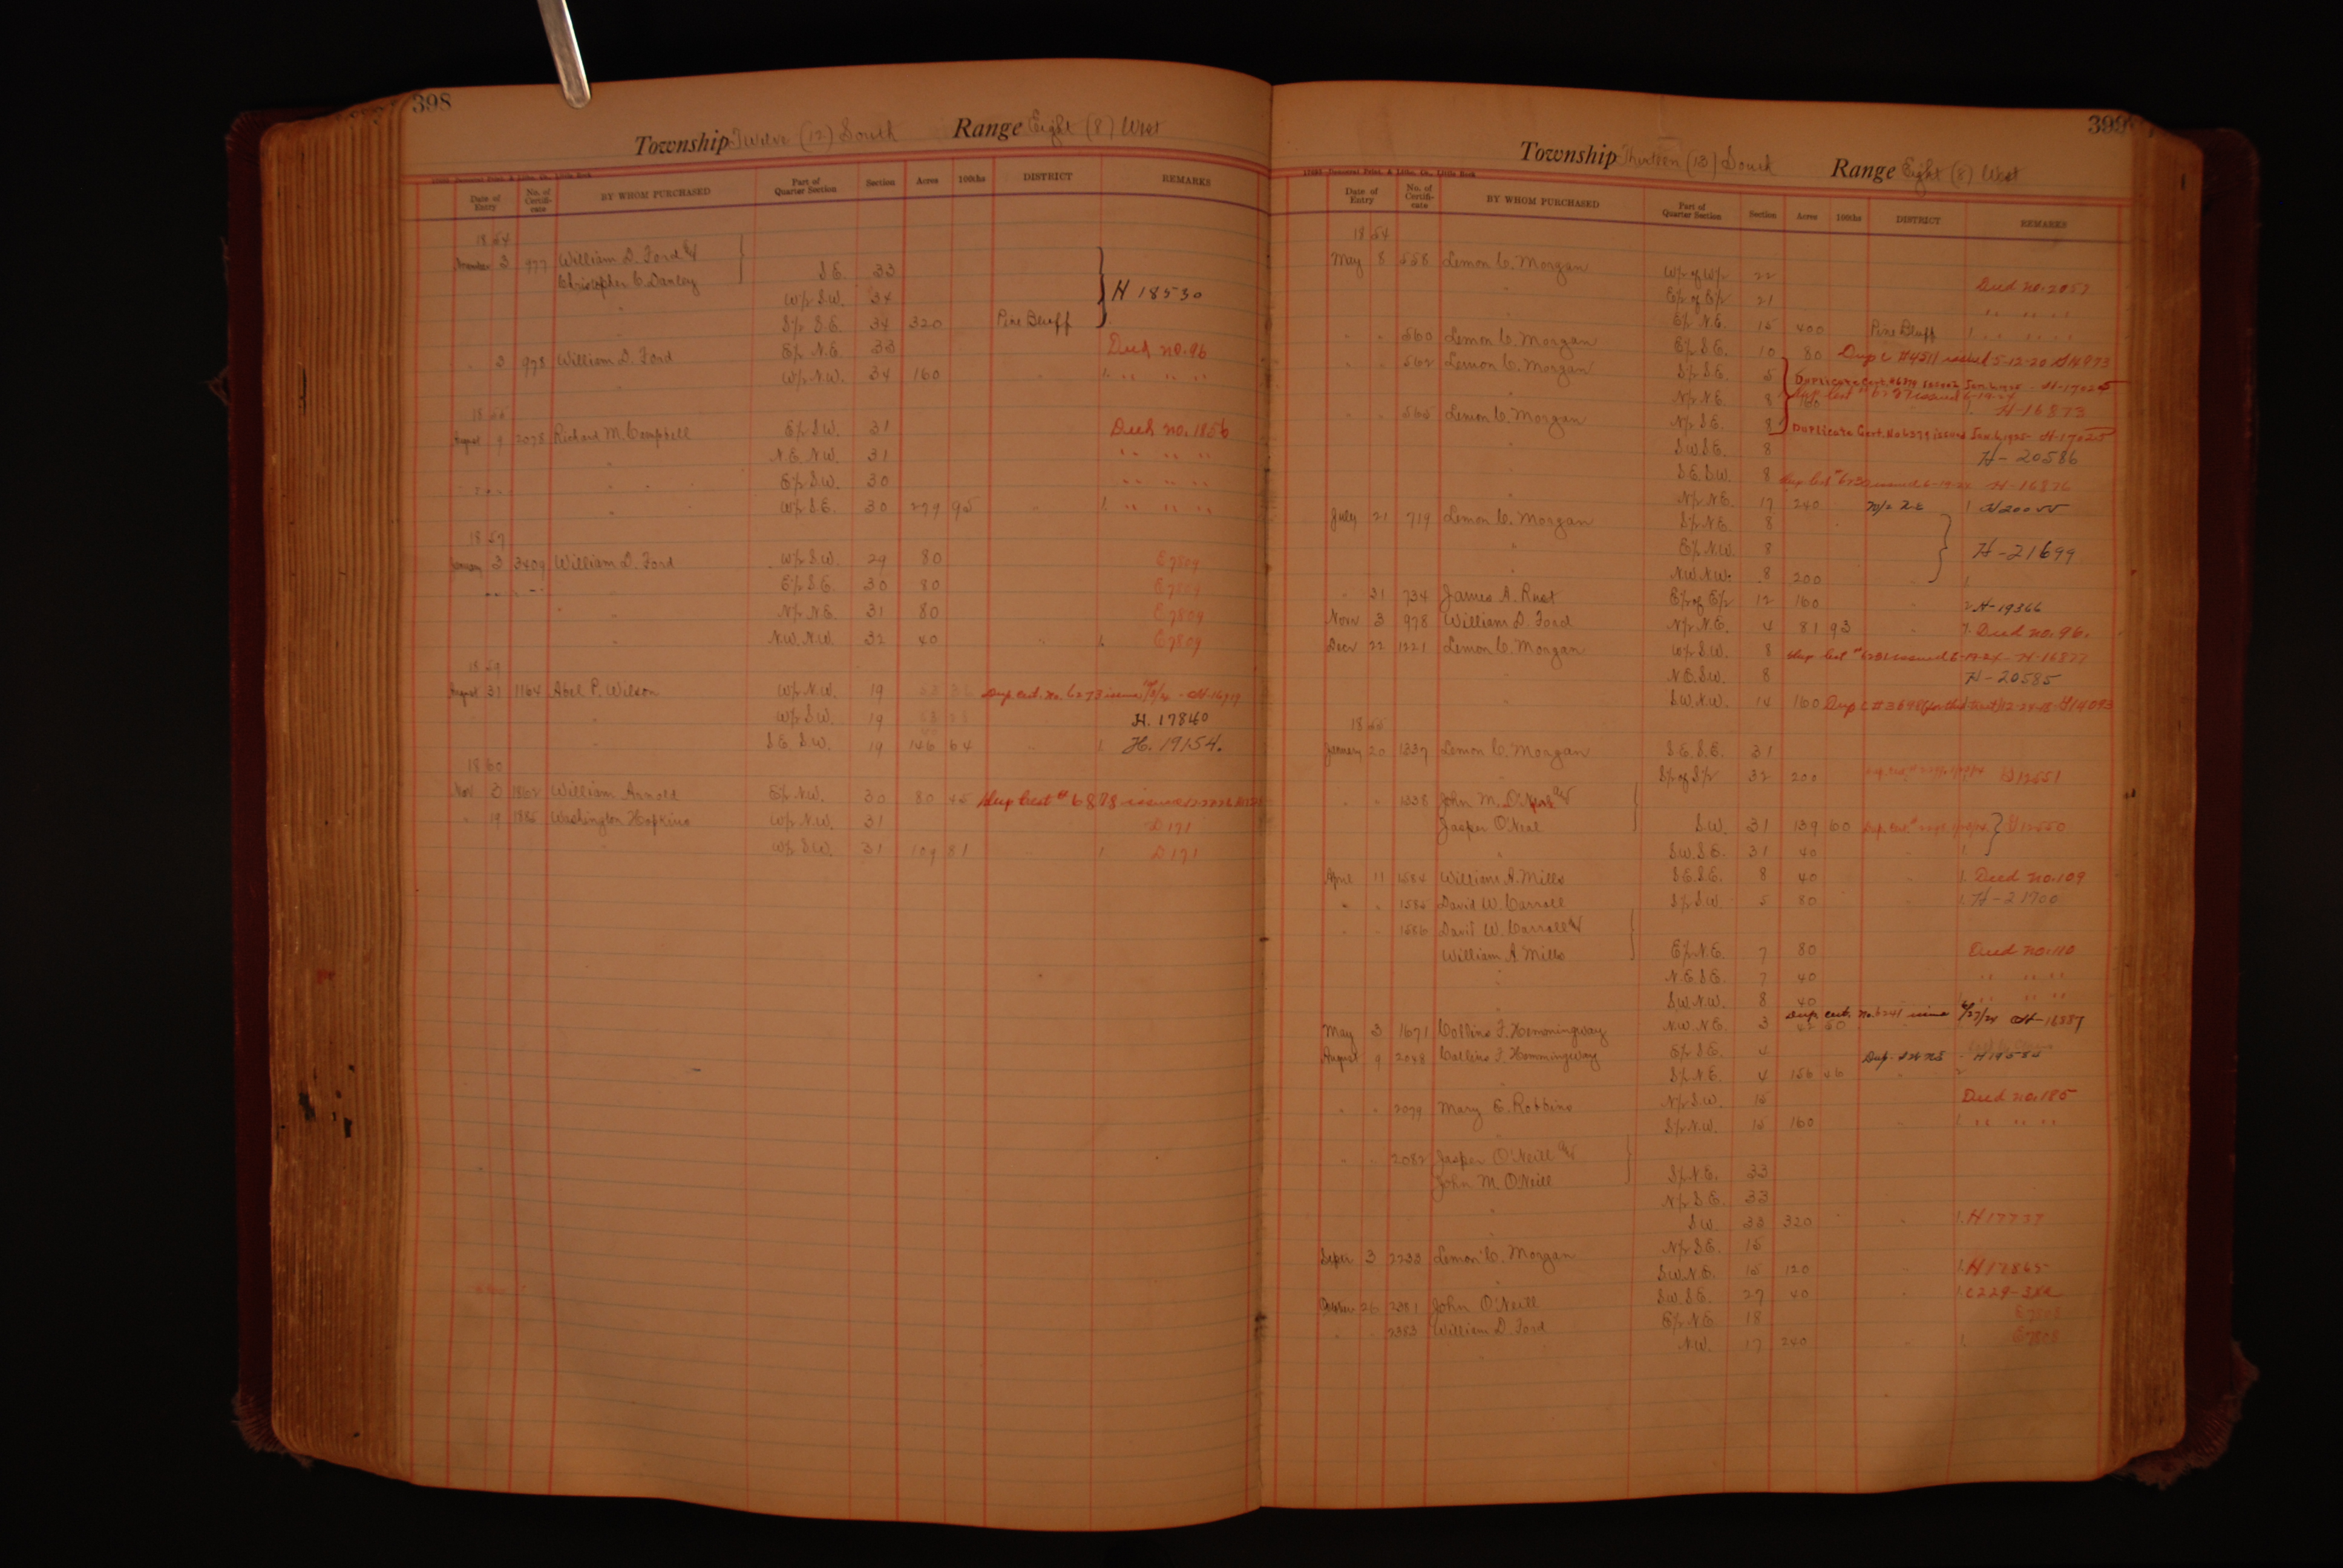 398
Township Twelve (12) South Range Eight (8) West
Date of Entry No. of Certificate BY WHOM PURCHASED Part of Quarter Section Section Acres 100ths DISTRICT REMARKS
1854
November 3 977 William D. Ford &
Christopher C. Danley S.E. 33
" W½ S.W. 34 H 18530
S½ S.E. 34 320 Pine Bluff
" 3 978 William D. Ford E½ N.E. 33 Deed no. 96
" W½ N.W. 34 160 " " " " "
1855
August 9 2078 Richard M. Campbell E½ S.W. 31 Deed no. 1856
" N.E. N.W. 31 " " "
" " E½ S.W. 30 " " "
" W½ S.E. 30 279 95 " 1. " " "
1857
January 3 3409 William D. Ford W½ S.W. 29 80 E7809
" E½ S.E. 30 80 E7809
" N½ N.E. 31 80 E7809
" N.W. N.W. 32 40 " E7809
1859
August 31 1164 Abel P. Wilson W½ N.W. 19 Dup cert. no. 6273
" W½ S.W. 19 H. 17840
" S.E. S.W. 19 146 64 " 1. H. 19154.
1860
Nov 3 1862 William Arnold E½ N.W. 30 80 45 Dup Cert # 6878 issued
" 19 1885 Washington Hopkins W½ N.W. 31 D 171
" W½ S.W. 31 109 81 " 1 D 171
399
Township Thirteen (13) South Range Eight (8) West
Date of Entry No. of Certificate BY WHOM PURCHASED Part of Quarter Section Section Acres 100ths DISTRICT REMARKS
1854
May 8 558 Lemon C. Morgan W½ of W½ 22 Deed no. 2057
" E½ of E½ 21 " " " "
E½ N.E. 15 400 Pine Bluff 1. " " "
" " 560 Lemon C. Morgan E½ S.E. 10 80 Dup C #4511 issued 5-12-20 G14973
" " 562 Lemon C. Morgan S½ S.E. 5 Duplicate Cert. #6279 issued Jan. 6, 1925 - H-17025
N½ N.E. 8 H-16873
" " 565 Lemon C. Morgan N½ S.E. 8 Duplicate Cert. No 6279 issued Jan. 6, 1925 - H-17025
" S.W. S.E. 8 H-20586
S.E. S.W. 8 Dup Cert # 6230 issued 6-19-24 H-16876
" N½ N.E. 17 240 1 H20055
July 21 719 Lemon C. Morgan S½ N.E. 8
" E½ N.W. 8 H-21699
" N.W. N.W. 8 200 "
" 31 734 James A. Rust E½ of E½ 12 160 " 2 H-19366
Novr 3 978 William D. Ford N½ N.E. 4 81 93 " 7. Deed no. 96.
Decr 22 1221 Lemon C. Morgan W½ S.W. 8 Dup Cert # 6231 issued 6-19-24 - H-16877
N.E. S.W. 8 H-20585
" S.W. N.W. 14 160 Dup C #3698 12-24-18 G14093
1855
January 20 1337 Lemon C. Morgan S.E. S.E. 31
" S½ of S½ 32 200 G12651
" " 1338 John M. O'Neal &
Jasper O'Neal S.W. 31 139 60 G12650
" S.W. S.E. 31 40 " 1.
April 11 1584 William A. Mills S.E. S.E. 8 40 " 1. Deed no. 109
" " 1585 David W. Carroll S½ S.W. 5 80 " 1. H-21700
" " 1586 David W. Carroll &
William A. Mills E½ N.E. 7 80 Deed no. 110
" N.E. S.E. 7 40 " " "
" S.W. N.W. 8 40 " " "
May 3 1671 Collins F. Hemmingway N.W. N.E. 3 Dup. cert. no. 6241 issued 6/27/24 H-16887
August 9 2048 Collins F. Hemmingway E½ S.E. 4 H19585
" S½ N.E. 4 156 46 "
" " 2079 Mary E. Robbins N½ S.W. 15 Deed no. 185
" S½ N.W. 15 160 " 1. " " "
" " 2082 Jasper O'Neill &
John M. O'Neill S½ N.E. 33
N½ S.E. 33
" S.W. 33 320 " 1. H17737
Septr 3 2233 Lemon C. Morgan N½ S.E. 15
" S.W. N.E. 15 120 " 1. H17865
October 26 2381 John O'Neill S.W. S.E. 27 40 " 1. C229-
" " 2383 William D. Ford E½ N.E. 18 E7808
" N.W. 17 240 " 1. E7808